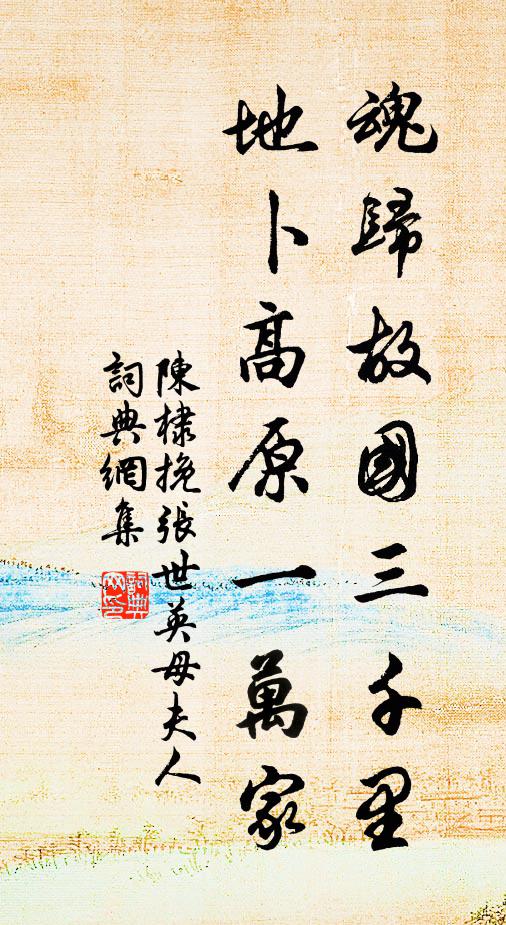 魂歸故國三千里
地卜高原一萬家
陳棣挽張世英母夫人
詞典網集
詞典網印